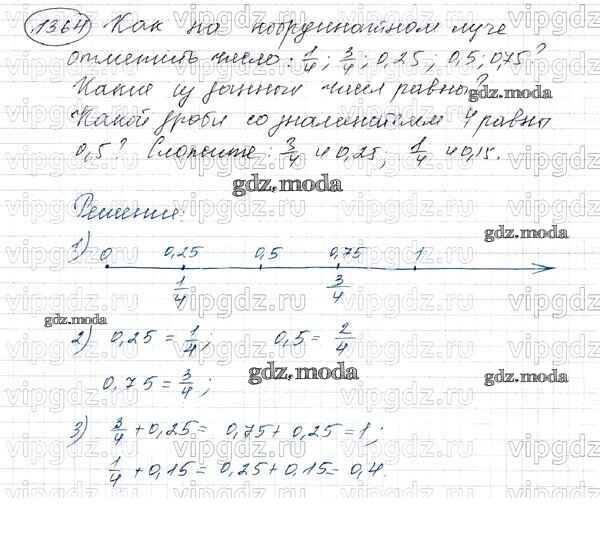 1364 Как на координатном луче
отметить число: 1/4; 3/4; 0,25; 0,5; 0,75?
Какие из данных чисел равны?
Какой дроби со знаменателем 4 равны
0,5? Сложите: 3/4 и 0,25; 1/4 и 0,15.
gdz.moda
Решение:
1) 0 0,25 0,5 0,75 1
1/4 3/4
2) 0,25 = 1/4; 0,5 = 2/4
0,75 = 3/4;
3) 3/4 + 0,25 = 0,75 + 0,25 = 1;
1/4 + 0,15 = 0,25 + 0,15 = 0,4.
vipgdz.ru